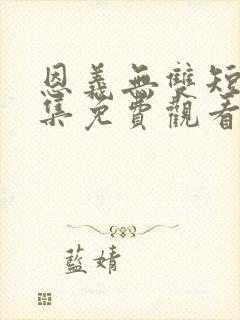 恩義無雙短
集免費觀看
藍婧